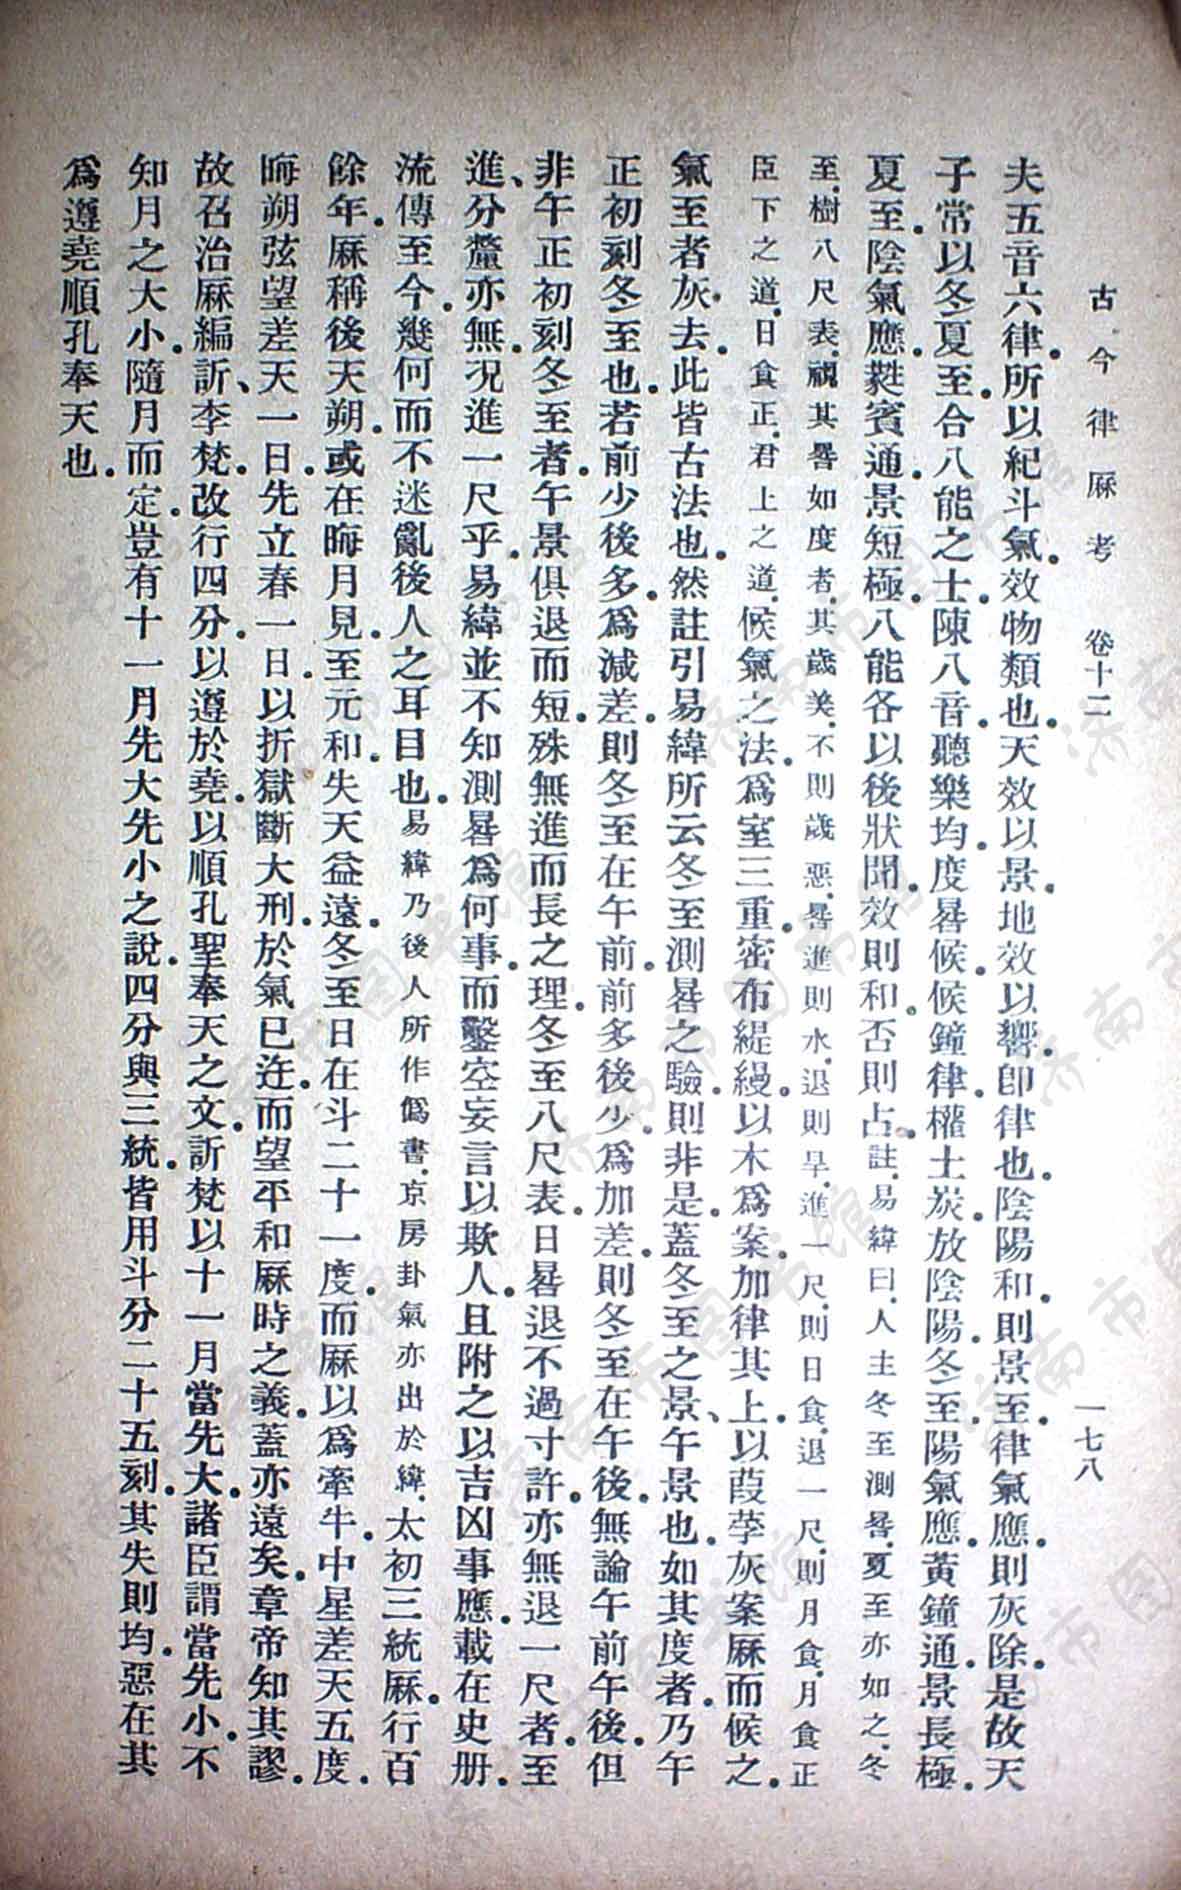 古今律厤考 卷十二 一七八
夫五音六律。所以紀斗氣。效物類也。天效以景。地效以響。卽律也。陰陽和。則景至。律氣應。則灰除。是故天
子常以冬夏至。合八能之士。陳八音。聽樂均。度晷候。候鐘律。權土炭。放陰陽。冬至。陽氣應。黃鐘通。景長極。
夏至。陰氣應。蕤賓通。景短極。八能各以後狀聞。效則和。否則占。註。易緯曰。人主冬至測晷。夏至亦如之。冬
至。樹八尺表。視其晷如度者。其歲美。不則歲惡。晷進則水。退則旱。進一尺。則日食。退一尺。則月食。月食正
臣下之道。日食正君上之道。候氣之法。爲室三重。密布緹縵。以木爲案。加律其上。以葭莩灰案厤而候之。
氣至者灰去。此皆古法也。然註引易緯所云冬至測晷之驗。則非是。蓋冬至之景、午景也。如其度者。乃午
正初刻冬至也。若前少後多。爲減差。則冬至在午前。前多後少。爲加差。則冬至在午後。無論午前午後。但
非午正初刻冬至者。午景俱退而短。殊無進而長之理。冬至八尺表。日晷退不過寸許。亦無退一尺者。至
進、分釐亦無。況進一尺乎。易緯並不知測晷爲何事。而鑿空妄言以欺人。且附之以吉凶事應。載在史册。
流傳至今。幾何而不迷亂後人之耳目也。易緯乃後人所作僞書。京房卦氣亦出於緯。太初三統厤。行百
餘年。厤稱後天朔。或在晦月見。至元和。失天益遠。冬至日在斗二十一度。而厤以爲牽牛。中星差天五度。
晦朔弦望差天一日。先立春一日。以折獄斷大刑。於氣已迕。而望平和厤時之義。蓋亦遠矣。章帝知其謬。
故召治厤編訢、李梵。改行四分。以遵於堯。以順孔聖奉天之文。訢梵以十一月當先大。諸臣謂當先小。不
知月之大小。隨月而定。豈有十一月先大先小之說。四分與三統。皆用斗分二十五刻。其失則均。惡在其
爲遵堯順孔奉天也。